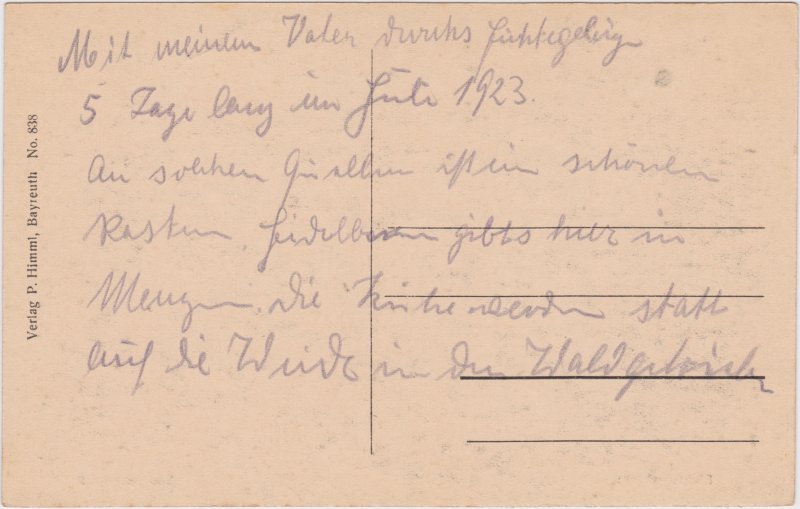 Mit meinem Vater durchs Fichtelgebirge
5 Tage lang im Juli 1923.
An solchen Quellen ist ein schönes
Rasten. Heidelbeeren gibts hier in
Mengen. Die Kühe werden statt
auf die Weide in den Wald getrieben
Verlag P. Himml, Bayreuth No. 838